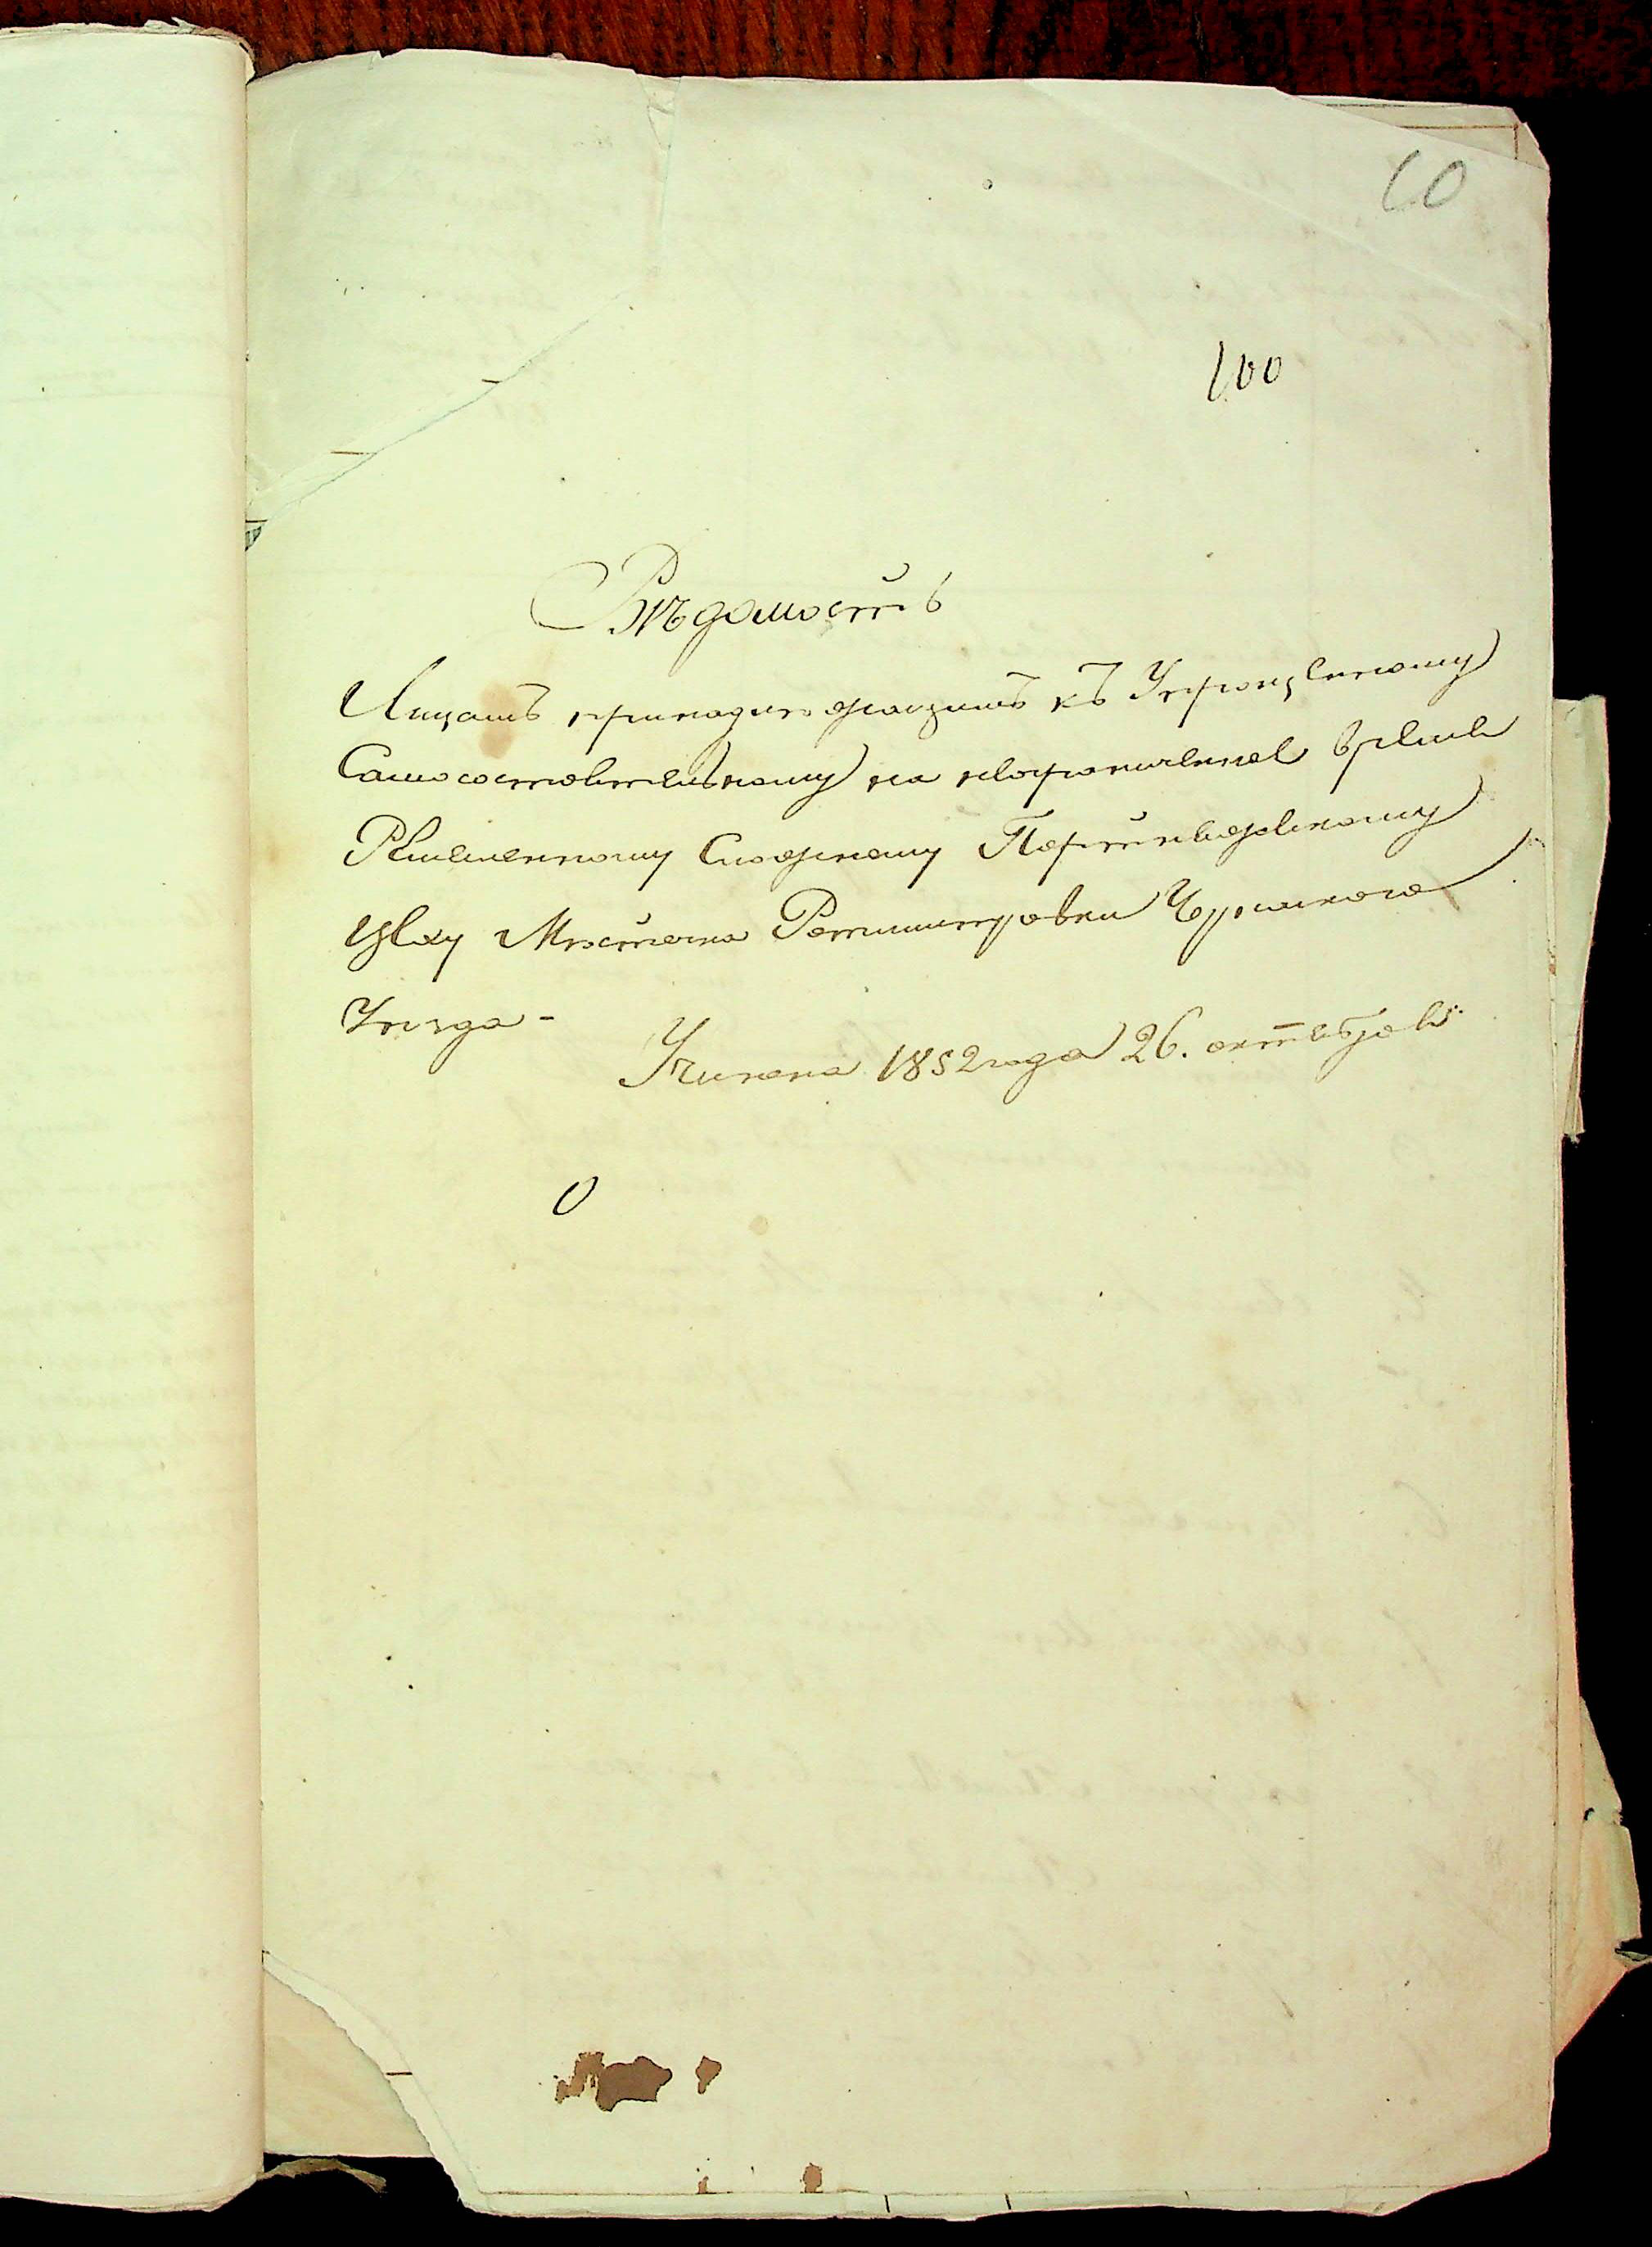 60
100
Вѣдомость
Лицамъ принадлежащимъ къ Упрощенному
Самосостоятельному на неограниченное время
Ремесленному Сложному Портняжскому
Цеху Мѣстечка Ротмистровки Черкаскаго
Уѣзда -
Учинена 1852 года 26. октября